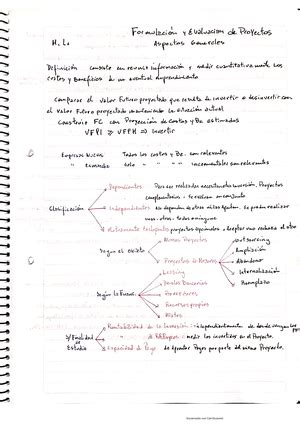 Formulación y Evaluación de Proyectos
Aspectos Generales
Definición consiste en reunir información y medir cuantitativamente los
costos y Beneficios de un eventual emprendimiento
Comparar el valor Futuro proyectado que resulta de invertir o desinvertir con
el valor Futuro proyectado manteniendo la situación actual
Construir FC con Proyección de Costos y Be estimados
VFPI > VFPH ⇒ invertir
Empresas Nuevas Todos los costos y Be. son relevantes
" Existente solo " " " incrementales son relevantes
Dependientes Para ser realizados necesitan otra inversión, Proyectos
complementarios
Clasificación Independientes No dependen de otros ni los afectan. Se pueden realizar
unos, otros, todos o ninguno
Mutuamente Excluyentes proyectos opcionales, Aceptar uno rechaza el otro
Según el objeto
Nuevos Proyectos
Proyectos de Mejora
Outsourcing
Ampliación
Abandono
Internalización
Reemplazo
Según la Fuente
Leasing
Deudas Bancarias
Proveedores
Recursos propios
Mixtos
S/Finalidad de Estudio
Rentabilidad de la Inversión: independientemente de donde vengan los
medir los invertidos en el Proyecto.
Capacidad de Pago de Afrontar Pagos por parte del mismo Proyecto.